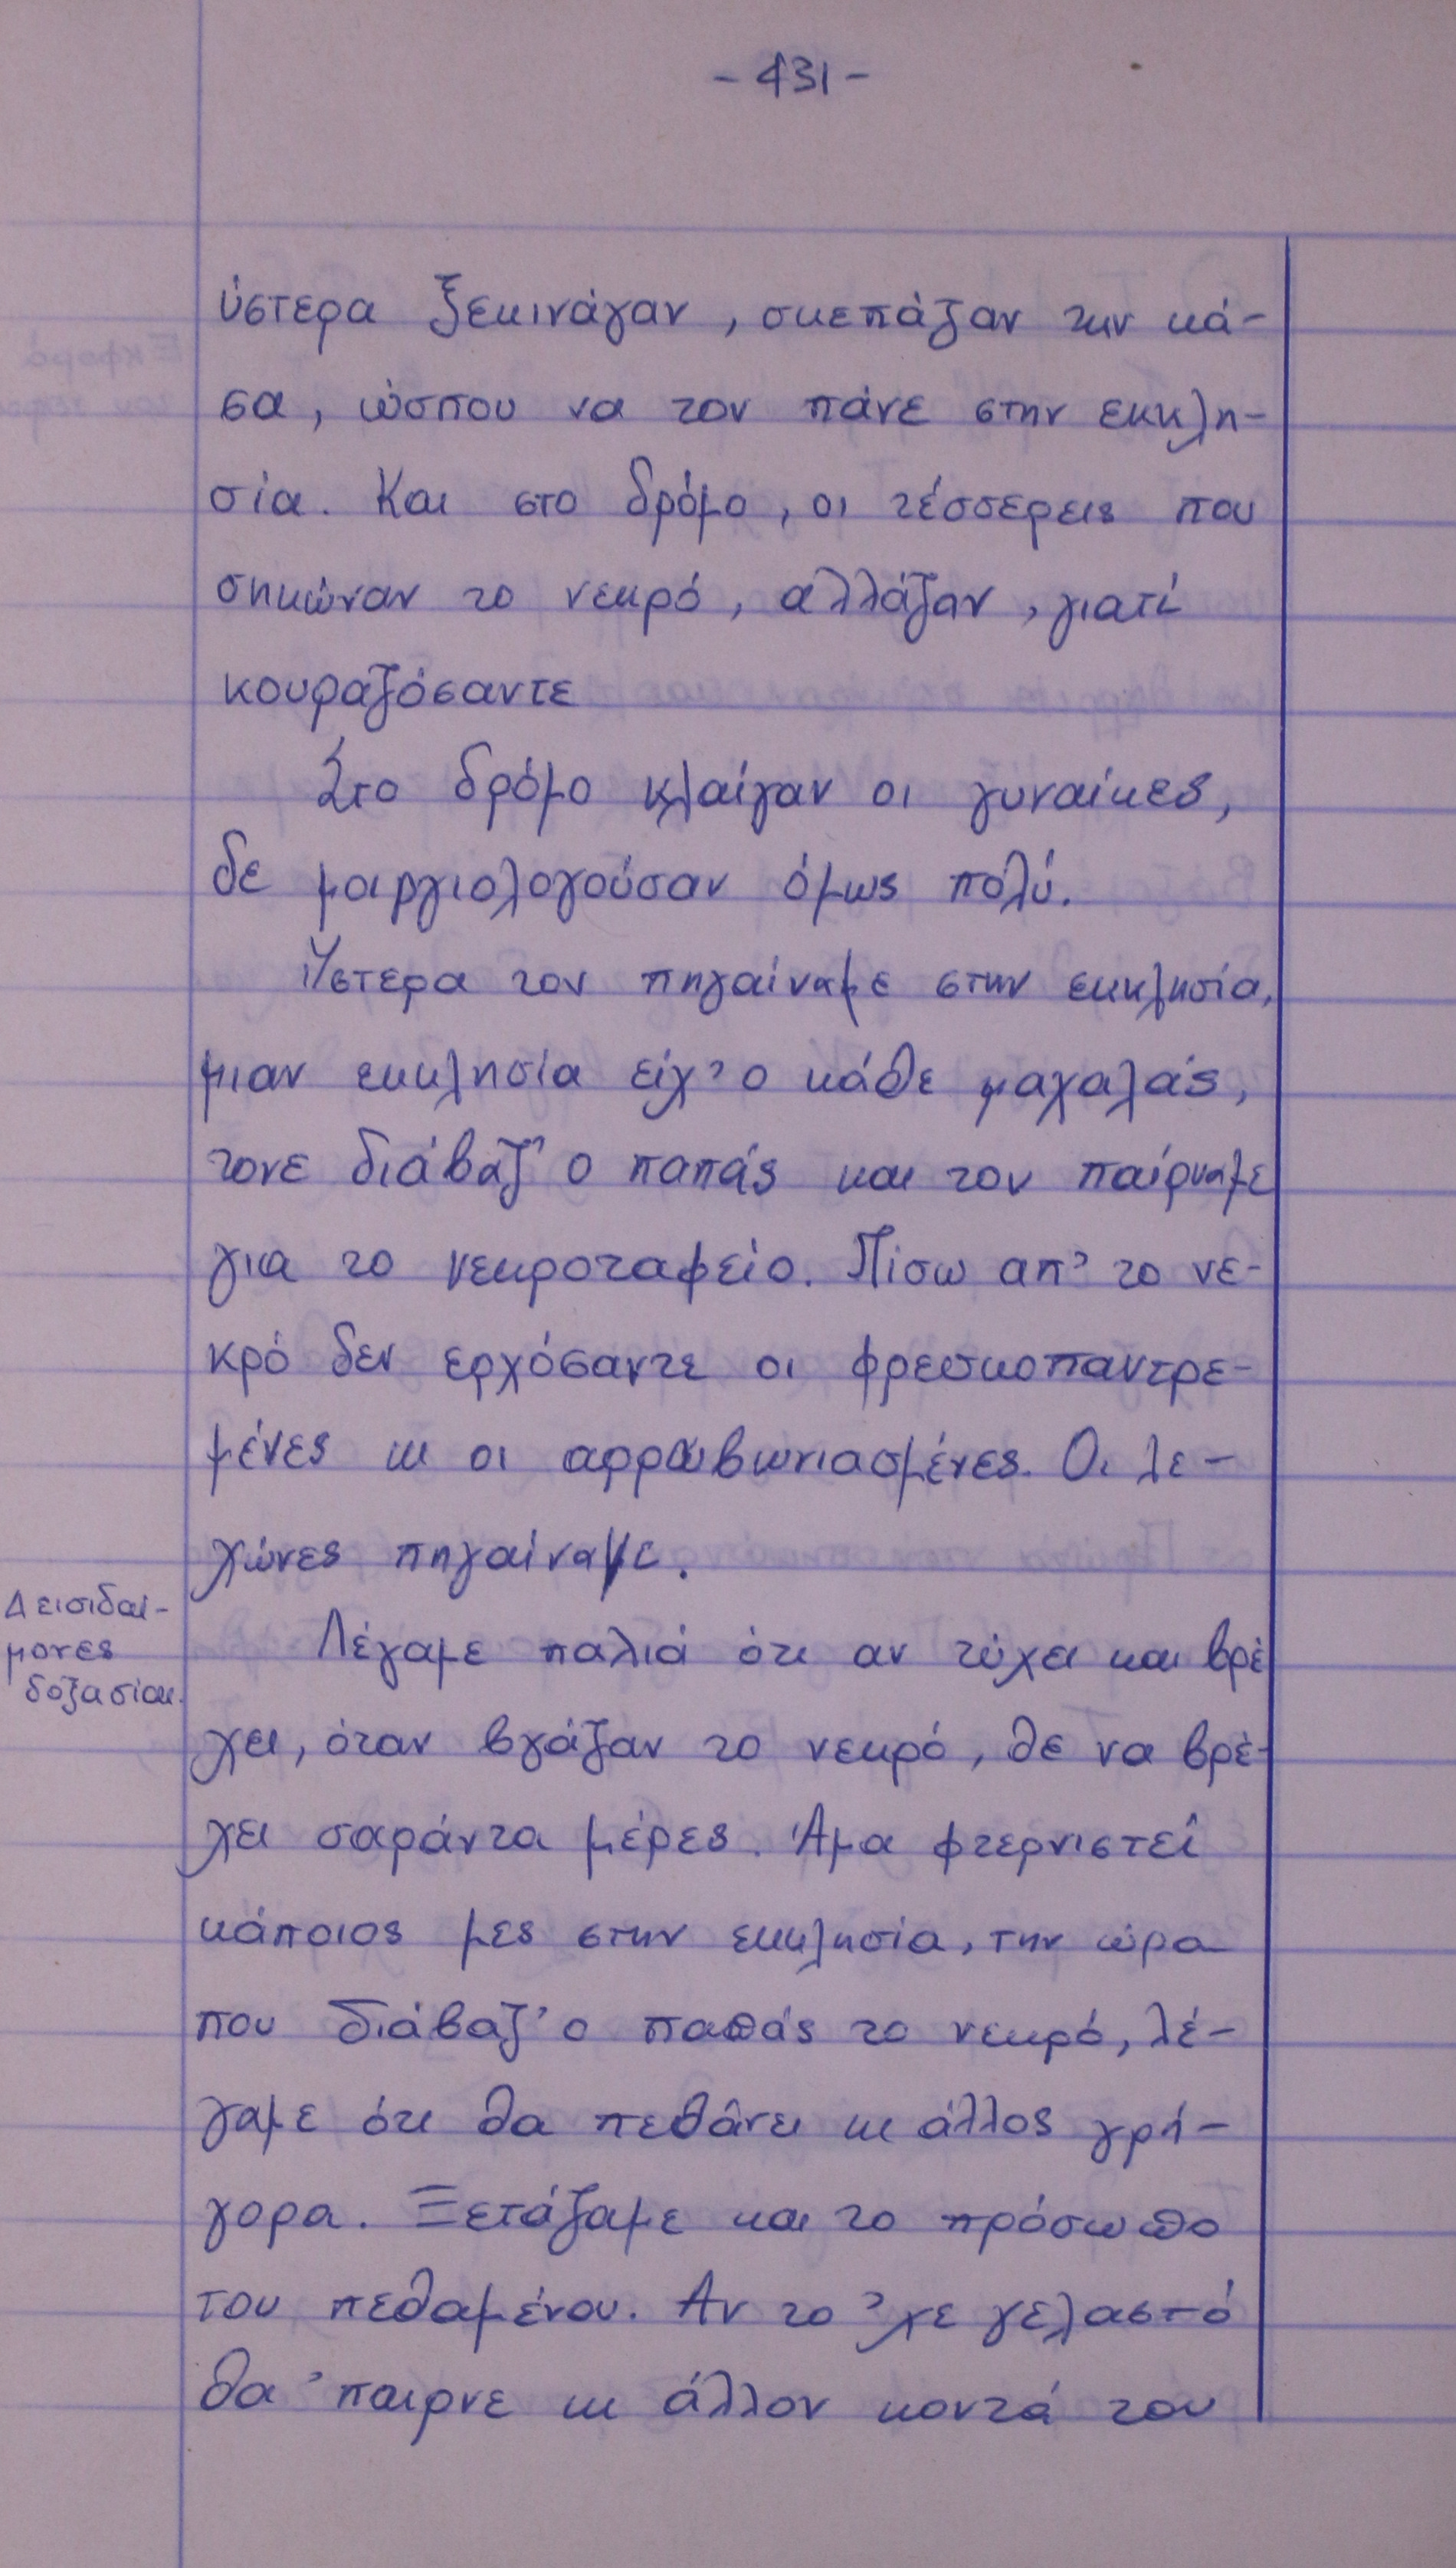 - 431 -
ύστερα ξεκινάγαν, σκεπάζαν την κά-
σα, ώσπου να τον πάνε στην εκκλη-
σία. Και στο δρόμο, οι τέσσερεις που
σηκώναν το νεκρό, αλλάζαν, γιατί
κουραζόσαντε
Στο δρόμο κλαίγαν οι γυναίκες,
δε μοιργιολογούσαν όμως πολύ.
Ύστερα τον πηγαίναμε στην εκκλησία,
μιαν εκκλησία είχ' ο κάθε μαχαλάς,
τονε διάβαζ' ο παπάς και τον παίρναμε
για το νεκροταφείο. Πίσω απ' το νε-
κρό δεν ερχόσαντε οι φρεσκοπαντρε-
μένες κι οι αρραβωνιασμένες. Οι λε-
χώνες πηγαίναμε.
Δεισιδαί-
μονες
δοξασίαι.
Λέγαμε παλιά ότι αν τύχει και βρέ
χει, όταν βγάζαν το νεκρό, θε να βρέ-
χει σαράντα μέρες. Άμα φτερνιστεί
κάποιος μες στην εκκλησία, την ώρα
που διάβαζ' ο παπάς το νεκρό, λέ-
γαμε ότι θα πεθάνει κι άλλος γρή-
γορα. Ξετάζαμε και το πρόσωπο
του πεθαμένου. Αν το 'χε γελαστό
θα 'παιρνε κι άλλον κοντά του